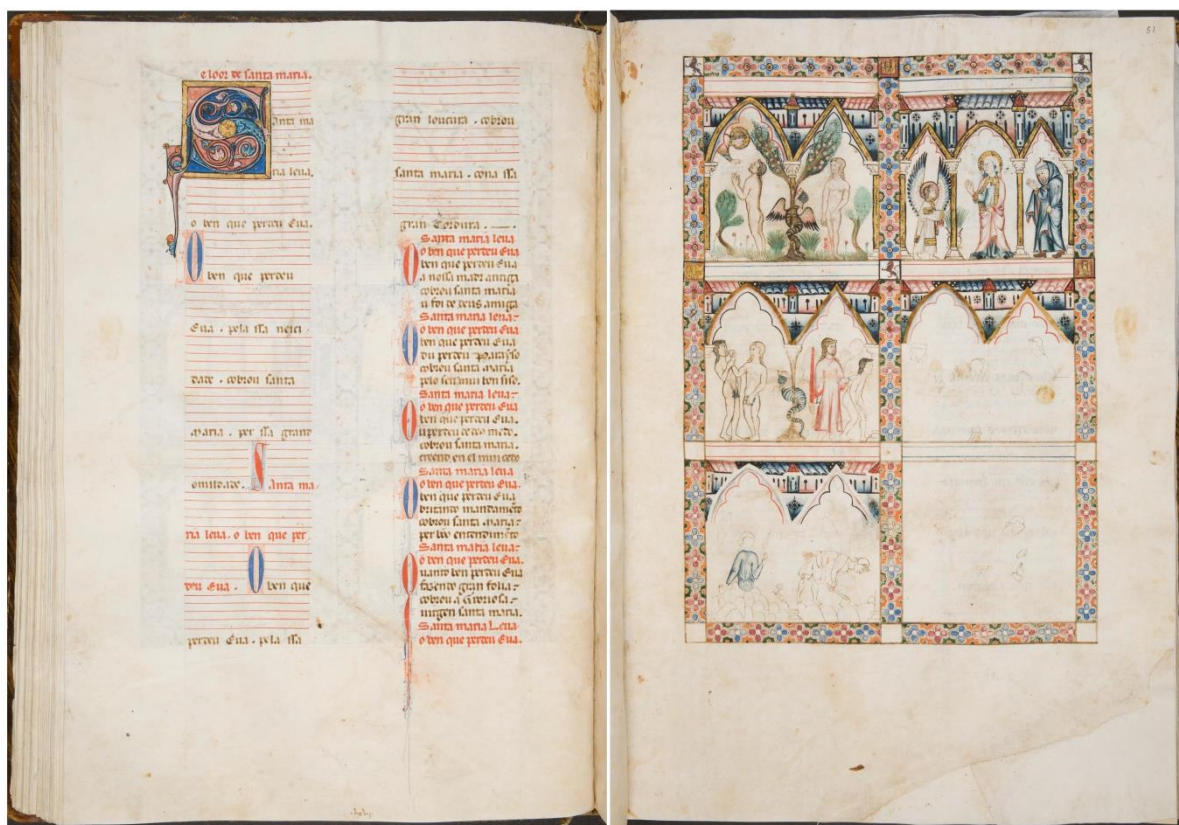 e loor de santa maria.
anta ma
ria leua.
o ben que perdeu Eua.
O ben que perdeu
Eua. pela ssa neici
dade. cobrou santa
maria. per ssa grand
omildade. Santa ma
ria leua. o ben que per
deu Eua. O ben que
perdeu Eua. pela ssa
gran loucura. cobrou
santa maria. cona ssa
gran cordura.
Santa maria leua
o ben que perdeu Eua
O ben que perdeu Eua
a nossa madr antiga
cobrou santa maria
u foi de deus amiga
Santa maria leua:
o ben que perdeu Eua
O ben que perdeu Eua
du perdeu parayso
cobrou santa maria
pelo seu mui bon siso.
Santa maria leua:
o ben que perdeu Eua
O ben que perdeu Eua.
u perdeu de deo medo.
cobrou santa maria.
creend en el
Santa maria leua
o ben que perdeu Eua
O ben que perdeu Eua
britando mandamento
cobrou santa maria:
per boo entendimento
Santa maria leua:
o ben que perdeu Eua
Quanto ben perdeu Eua
fazendo gran folia:
cobrou a groriosa.
uirgen santa maria.
Santa maria Leua
o ben que perdeu Eua.
51